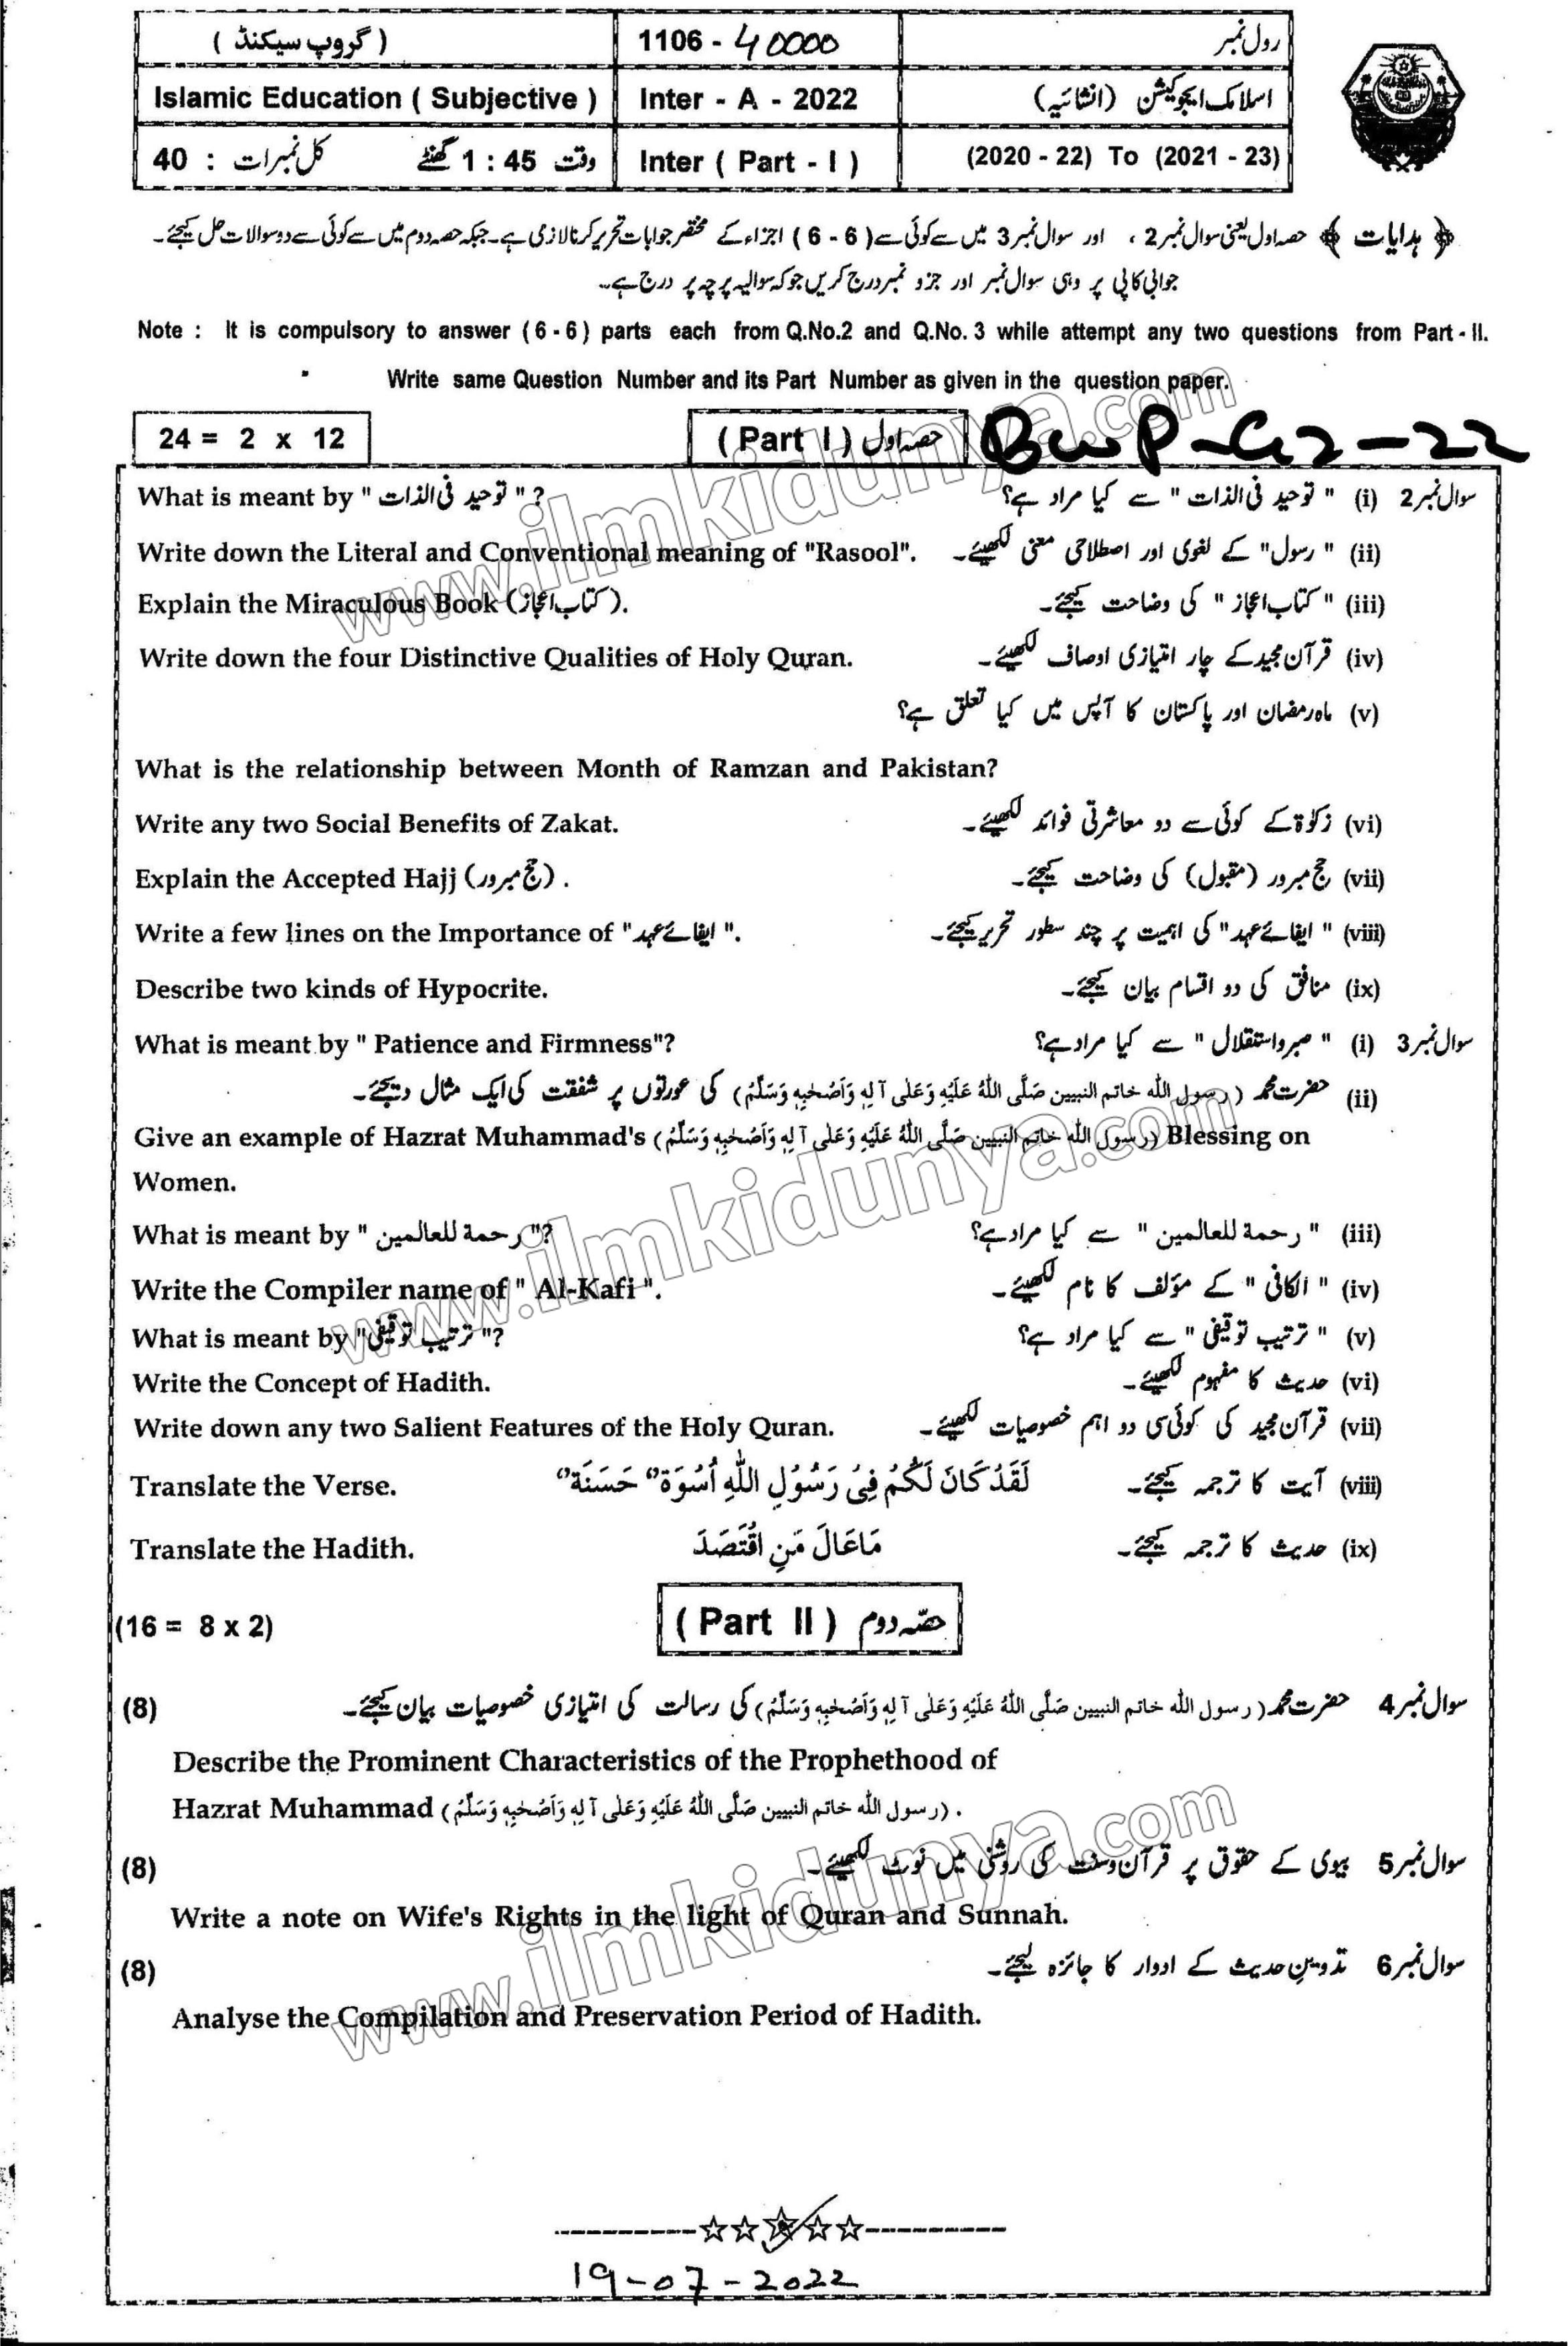 (گروپ سیکنڈ) 1106 - 40000 رول نمبر
Islamic Education ( Subjective ) Inter - A - 2022 اسلامک ایجوکیشن (انشائیہ)
کل نمبرات : 40 وقت 1 : 45 گھنٹے Inter ( Part - I ) (2020 - 22) To (2021 - 23)
﴿ ہدایات ﴾ حصہ اول یعنی سوال نمبر 2 ، اور سوال نمبر 3 میں سے کوئی سے ( 6 - 6 ) اجزاء کے مختصر جوابات تحریر کرنا لازی ہے۔ جبکہ حصہ دوم میں سے کوئی سے دو سوالات حل کیجئے۔
جوابی کاپی پر وہی سوال نمبر اور جزو نمبر درج کریں جو کہ سوالیہ پرچہ پر درج ہے۔
Note : It is compulsory to answer ( 6 - 6 ) parts each from Q.No.2 and Q.No. 3 while attempt any two questions from Part - II.
Write same Question Number and its Part Number as given in the question paper.
24 = 2 x 12 ( Part I ) حصہ اول BWP-G2-22
What is meant by " توحید فی الذات " ? سوال نمبر 2 (i) " توحید فی الذات " سے کیا مراد ہے؟
Write down the Literal and Conventional meaning of "Rasool". (ii) " رسول" کے لغوی اور اصطلاحی معنی لکھیئے۔
Explain the Miraculous Book (کتاب اعجاز). (iii) " کتاب اعجاز " کی وضاحت کیجئے۔
Write down the four Distinctive Qualities of Holy Quran. (iv) قرآن مجید کے چار امتیازی اوصاف لکھیئے۔
(v) ماہ رمضان اور پاکستان کا آپس میں کیا تعلق ہے؟
What is the relationship between Month of Ramzan and Pakistan?
Write any two Social Benefits of Zakat. (vi) زکوٰۃ کے کوئی سے دو معاشرتی فوائد لکھیئے۔
Explain the Accepted Hajj (حج مبرور) . (vii) حج مبرور (مقبول) کی وضاحت کیجئے۔
Write a few lines on the Importance of "ایفائے عہد ". (viii) " ایفائے عہد" کی اہمیت پر چند سطور تحریر کیجئے۔
Describe two kinds of Hypocrite. (ix) منافق کی دو اقسام بیان کیجئے۔
What is meant by " Patience and Firmness"? سوال نمبر 3 (i) " صبر و استقلال " سے کیا مراد ہے؟
(ii) حضرت محمد (رسول الله خاتم النبیین صَلَّی اللہُ عَلَیْہِ وَعَلٰی آلِہٖ وَاَصْحٰبِہٖ وَسَلَّمْ) کی عورتوں پر شفقت کی ایک مثال دیجئے۔
Give an example of Hazrat Muhammad's (رسول الله خاتم النبیین صَلَّی اللہُ عَلَیْہِ وَعَلٰی آلِہٖ وَاَصْحٰبِہٖ وَسَلَّمْ) Blessing on
Women.
What is meant by " رحمة للعالمین "? (iii) " رحمة للعالمین " سے کیا مراد ہے؟
Write the Compiler name of " Al-Kafi ". (iv) " الکافی " کے مؤلف کا نام لکھیئے۔
What is meant by "ترتیب توقیفی "? (v) " ترتیب توقیفی " سے کیا مراد ہے؟
Write the Concept of Hadith. (vi) حدیث کا مفہوم لکھیئے۔
Write down any two Salient Features of the Holy Quran. (vii) قرآن مجید کی کوئی سی دو اہم خصوصیات لکھیئے۔
Translate the Verse. لَقَدْ کَانَ لَکُمْ فِیْ رَسُوْلِ اللّٰہِ اُسْوَة" حَسَنَة" (viii) آیت کا ترجمہ کیجئے۔
Translate the Hadith. مَاعَالَ مَنِ اقْتَصَدَ (ix) حدیث کا ترجمہ کیجئے۔
(16 = 8 x 2) ( Part II ) حصّہ دوم
(8) سوال نمبر 4 حضرت محمد (رسول الله خاتم النبیین صَلَّی اللہُ عَلَیْہِ وَعَلٰی آلِہٖ وَاَصْحٰبِہٖ وَسَلَّمْ) کی رسالت کی امتیازی خصوصیات بیان کیجئے۔
Describe the Prominent Characteristics of the Prophethood of
Hazrat Muhammad (رسول الله خاتم النبیین صَلَّی اللہُ عَلَیْہِ وَعَلٰی آلِہٖ وَاَصْحٰبِہٖ وَسَلَّمْ) .
(8) سوال نمبر 5 بیوی کے حقوق پر قرآن وسنت کی روشنی میں نوٹ لکھیئے۔
Write a note on Wife's Rights in the light of Quran and Sunnah.
(8) سوال نمبر 6 تدوینِ حدیث کے ادوار کا جائزہ لیجئے۔
Analyse the Compilation and Preservation Period of Hadith.
19-07-2022
www.ilmkidunya.com
www.ilmkidunya.com
www.ilmkidunya.com